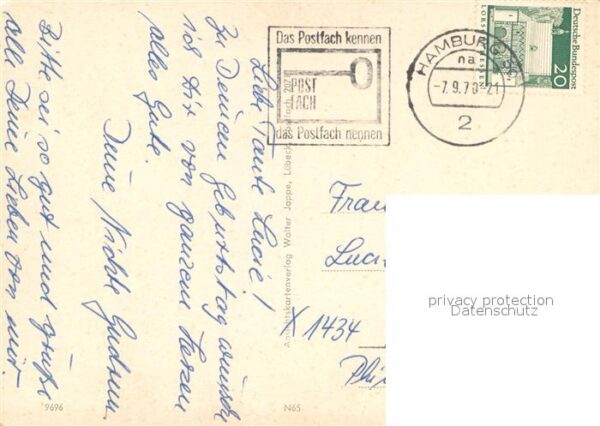 Liebe Tante Lucie!
Zu Deinem Geburtstag wünsche
ich Dir von ganzem Herzen
alles Gute.
Deine Nichte Gudrun
Bitte sei so gut und grüße
alle Deine Lieben von mir.
Das Postfach kennen
POST
FACH
das Postfach nennen
HAMBURG
na
-7.9.70-21
2
Deutsche Bundespost
20
LORSCH
HESSEN
Ansichtskartenverlag Walter Joppe, Lübeck, Postfach 207
Frau
Luci
X 1434
9696
N65
privacy protection
Datenschutz